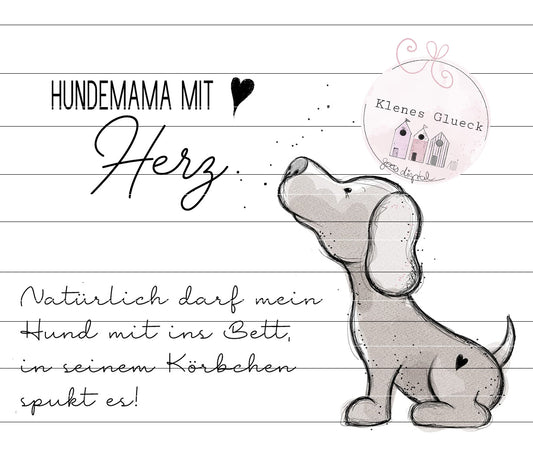 HUNDEMAMA MIT
Herz
Klenes Glueck
goes digital
Natürlich darf mein
Hund mit ins Bett,
in seinem Körbchen
spukt es!